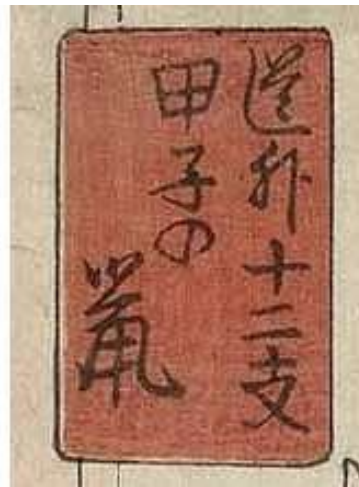 道外十二支
甲子の鼠